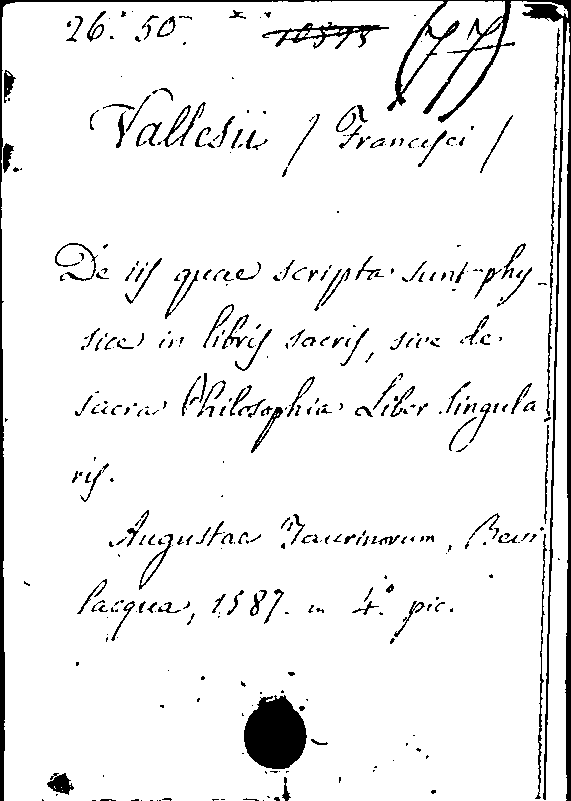 26. 50. 10595 (77)
Vallesii / Francisci /
De iis quae scripta sunt phy-
sice in libris sacris, sive de
sacra Philosophia Liber Singula
ris.
Augustae Taurinorum, Bevi
lacqua, 1587. in 4.° pic.